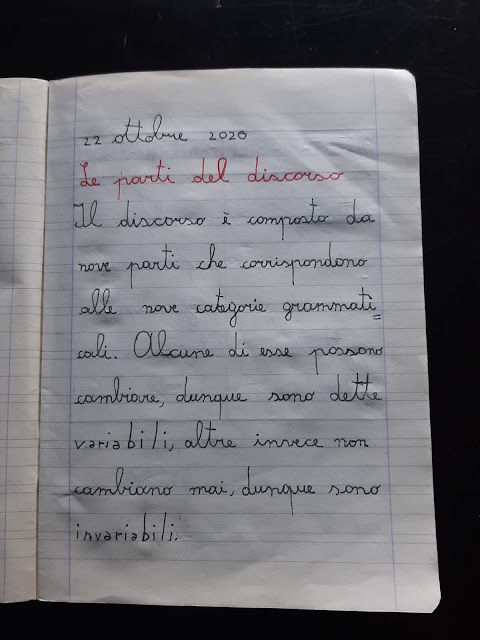 22 ottobre 2020
Le parti del discorso
Il discorso è composto da
nove parti che corrispondono
alle nove categorie grammati=
cali. Alcune di esse possono
cambiare, dunque sono dette
variabili, altre invece non
cambiano mai, dunque sono
invariabili.